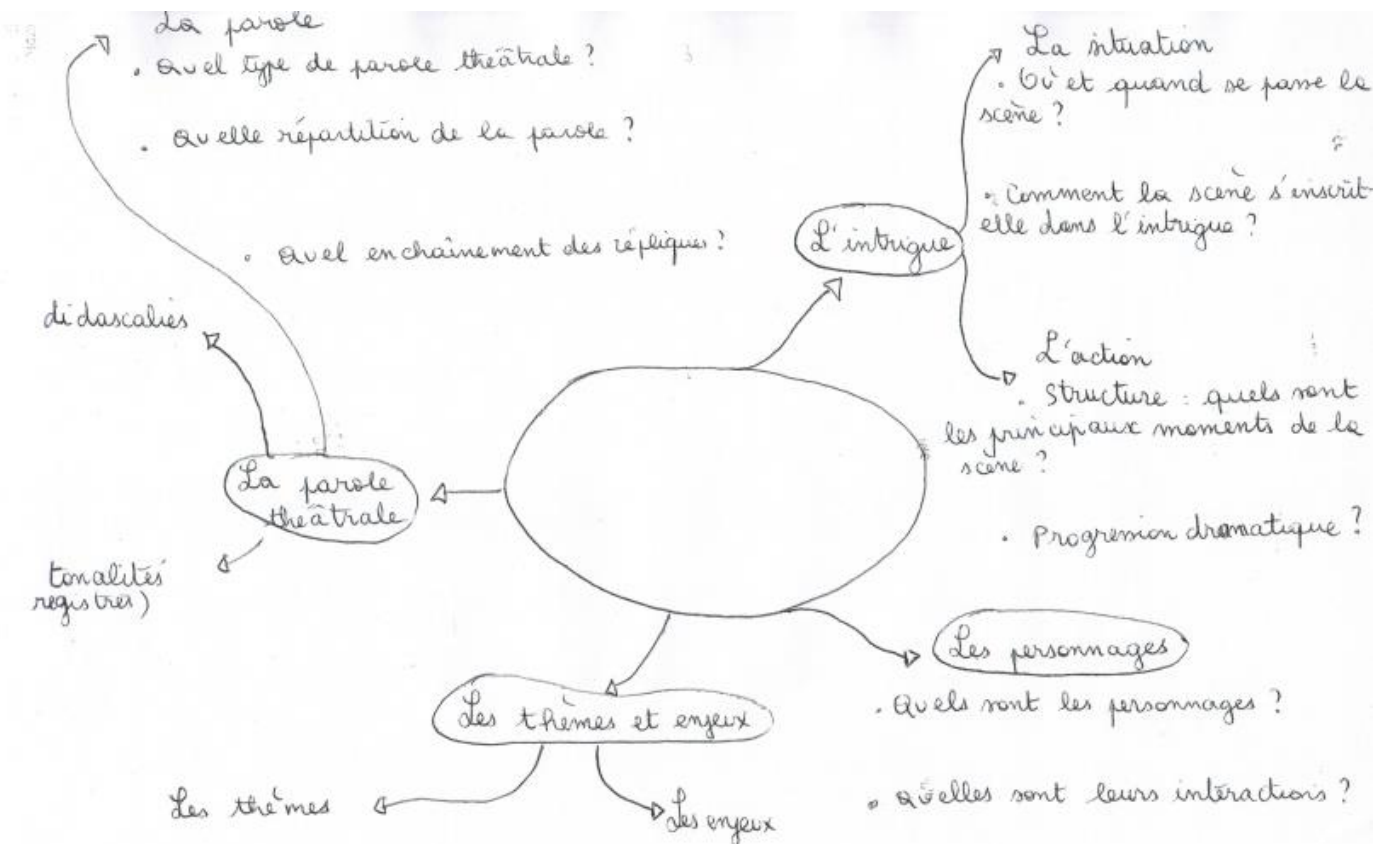 La parole
• Quel type de parole théâtrale ?
• Quelle répartition de la parole ?
• Quel enchaînement des répliques ?
didascalies
La parole
théâtrale
tonalités
registres)
L'intrigue
La situation
• Où et quand se passe la
scène ?
• Comment la scène s'inscrit-
elle dans l'intrigue ?
L'action
• Structure : quels sont
les principaux moments de la
scène ?
• Progression dramatique ?
Les personnages
• Quels sont les personnages ?
• Quelles sont leurs intéractions ?
Les thèmes et enjeux
Les thèmes
Les enjeux